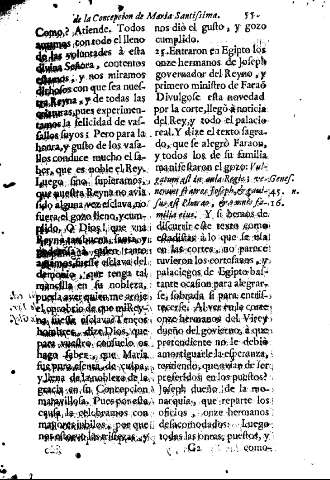 de la Concepcion de Maria Santissima. 55.
Como? Atiende. Todos
amamos con todo el lleno
de voluntades à esta
divina Señora, contentos
estamos, y nos miramos
dichosos con que sea nues-
tra Reyna, y de todas las
criaturas, pues experimen-
tamos la felicidad de vas-
sallos suyos; Pero para la
honra, y gusto de los vasa-
llos conduce mucho el sa-
ber, que es noble el Rey.
Luego sino supieramos,
que nuestra Reyna no avia
sido alguna vez esclava, no
fuera el gozo lleno, y cum-
plido. O Dios! que una
Reyna tan
esclava del
demonio, que tenga tal
mancilla en su nobleza,
pueda aver quien me arroje
el oprobrio de que mi Rey-
na fuesse esclava? Tened
hombres, dize Dios, que
para vuestro consuelo os
hago saber, que Maria
fue para essenta de culpa,
y llena de la nobleza de la
gracia en su Concepcion
maravillosa. Pues por esta
causa la celebramos con
mayores jubilos, por que
nos
nos diò el gusto, y gozo
cumplido.
25. Entraron en Egipto los
onze hermanos de Joseph
governador del Reyno, y
primero ministro de Faraò
Divulgose esta novedad
por la corte, llegò à noticia
del Rey, y todo el palacio
real. Y dize el texto sagra-
do, que se alegrò Faraon,
y todos los de su familia
manifestaron el gozo: Vul-
gatum est in aula Regis: ve- Genes.
nerunt fratres Joseph, & gavi- 45. n.
sus est Pharao, & omnis fa- 16.
milia eius. Y si hemos de
discurrir este texto como
estadistas à lo que se usa
en las cortes, no parece
tuvieron los cortesanos, y
palaciegos de Egipto bas-
tante ocasion para alegrar-
se, sobrada si para entris-
tecerse. Al ver en la corte
onze hermanos del Virey
dueño del govierno, à que
pretendiente no le debio
amortiguarle la esperança,
temiendo, que avian de ser
preferidos en los puestos?
Joseph dueño de la mo-
narquia, que reparte los
oficios, onze hermanos
desacomodados: Luego
todas las honras, puestos, y
G2 como-